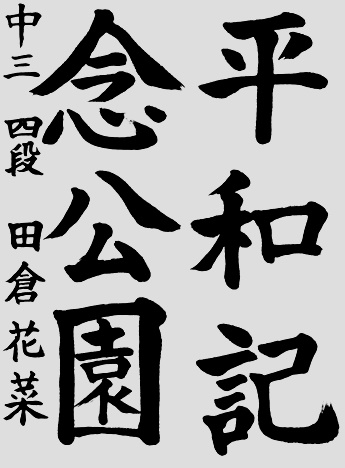 平和記
念公園
中三 四段 田倉花菜